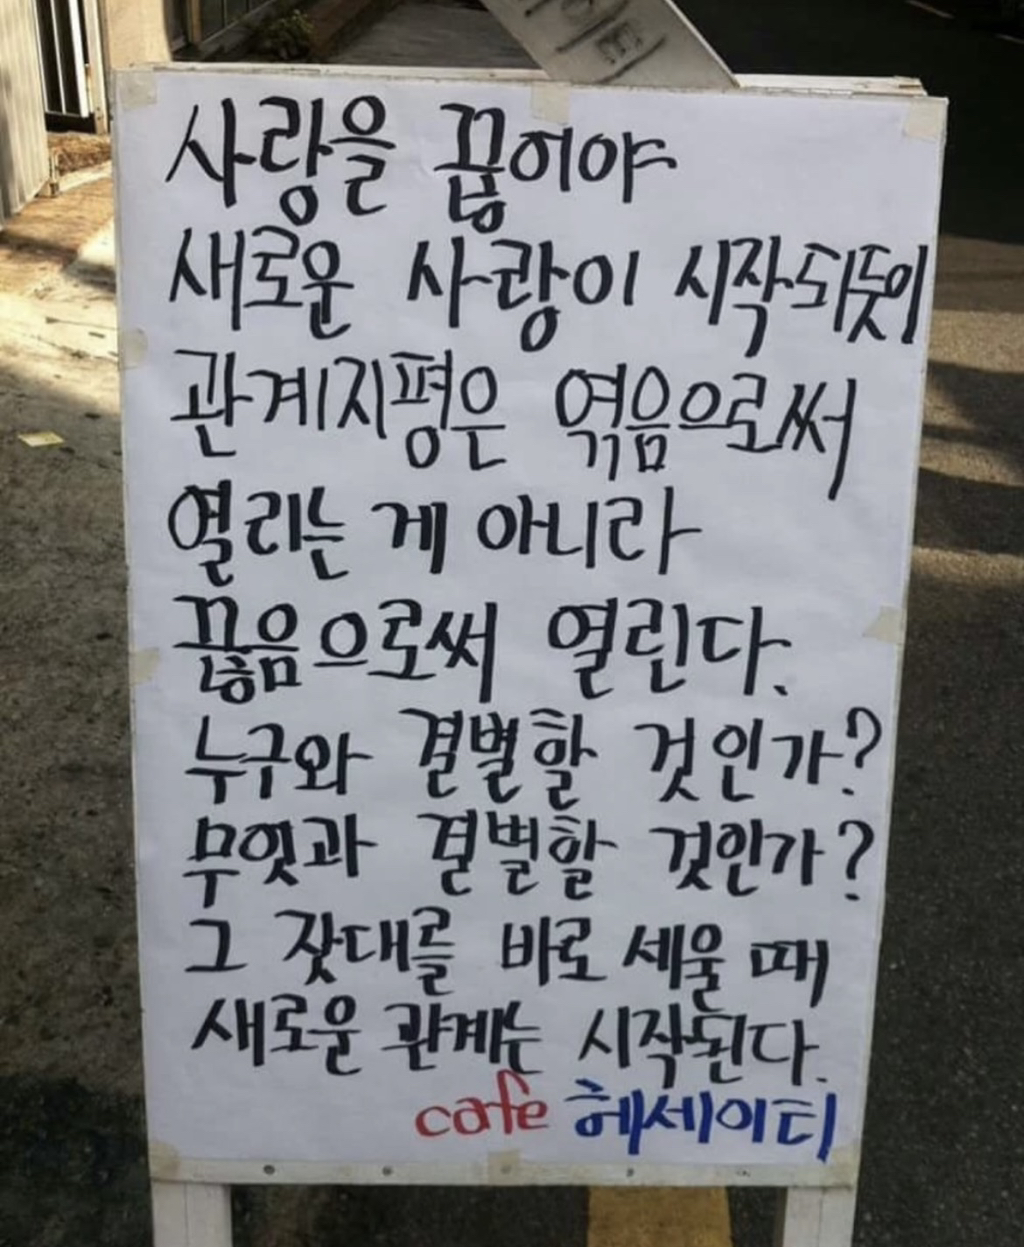 사랑을 끊어야
새로운 사랑이 시작되듯이
관계지평은 엮음으로써
열리는 게 아니라
끊음으로써 열린다.
누구와 결별할 것인가?
무엇과 결별할 것인가?
그 잣대를 바로 세울 때
새로운 관계는 시작된다.
cafe 헤세이티